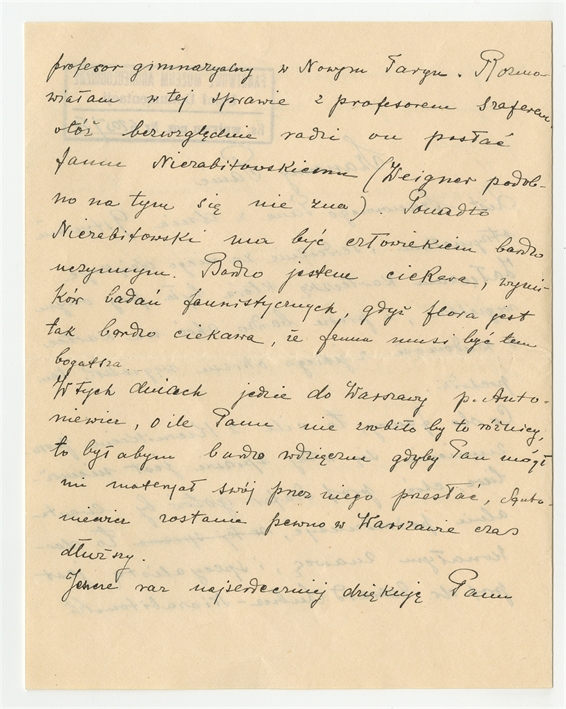 profesor gimnazyalny w Nowym Targu. Rozma-
wiałam w tej sprawie z profesorem Szaferem,
otóż bezwzględnie radzi on posłać
faunę Niezabitowskiemu (Weigner podob-
no na tym się nie zna). Ponadto
Niezabitowski ma być człowiekiem bardzo
uczynnym. Bardzo jestem ciekawa, wyni-
ków badań faunistycznych, gdyż flora jest
tak bardzo ciekawa, że fauna musi być tem
bogatsza
W tych dniach jedzie do Warszawy p. Anto-
niewicz, o ile Panu nie zrobiło by to różnicy,
to byłabym bardzo wdzięczna gdyby Pan mógł
mi materjał swój przez niego przesłać, Anto-
niewicz zostanie pewno w Warszawie czas
dłuższy.
Jeszcze raz najserdeczniej dziękuję Panu